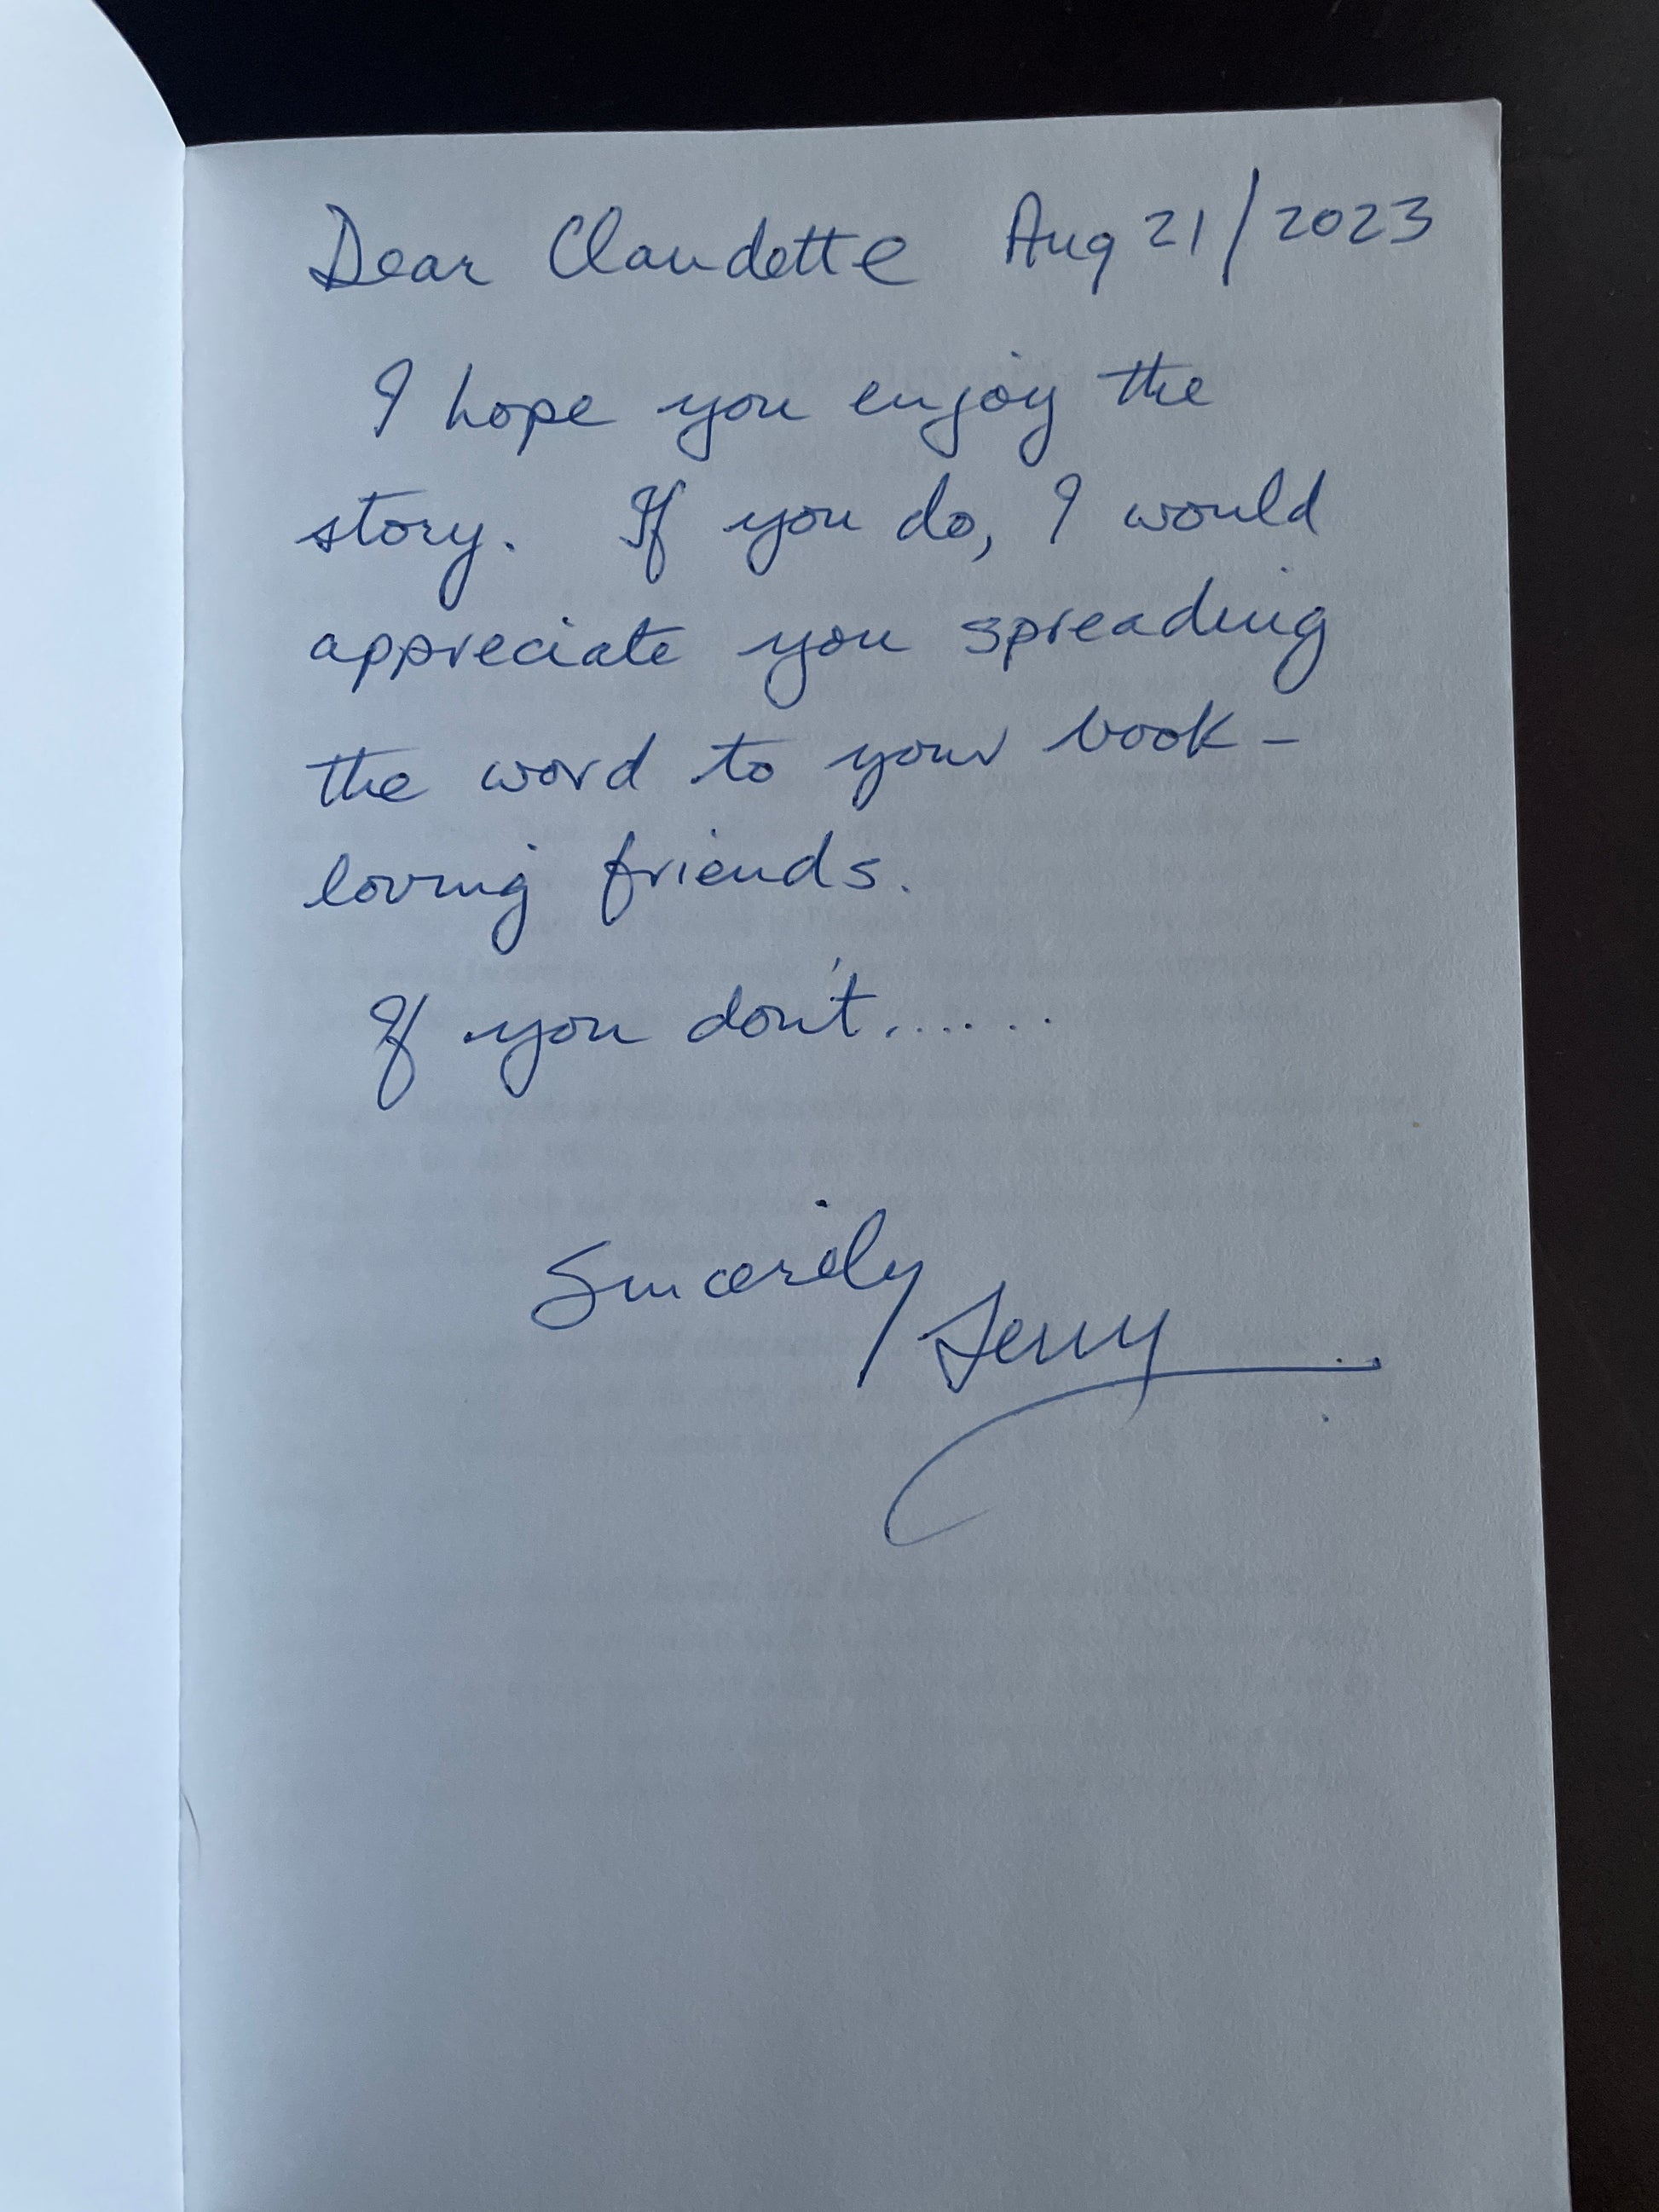 Dear Claudette Aug 21/2023
I hope you enjoy the
story. If you do, I would
appreciate you spreading
the word to your book-
loving friends.
If you don't......
Sincerely